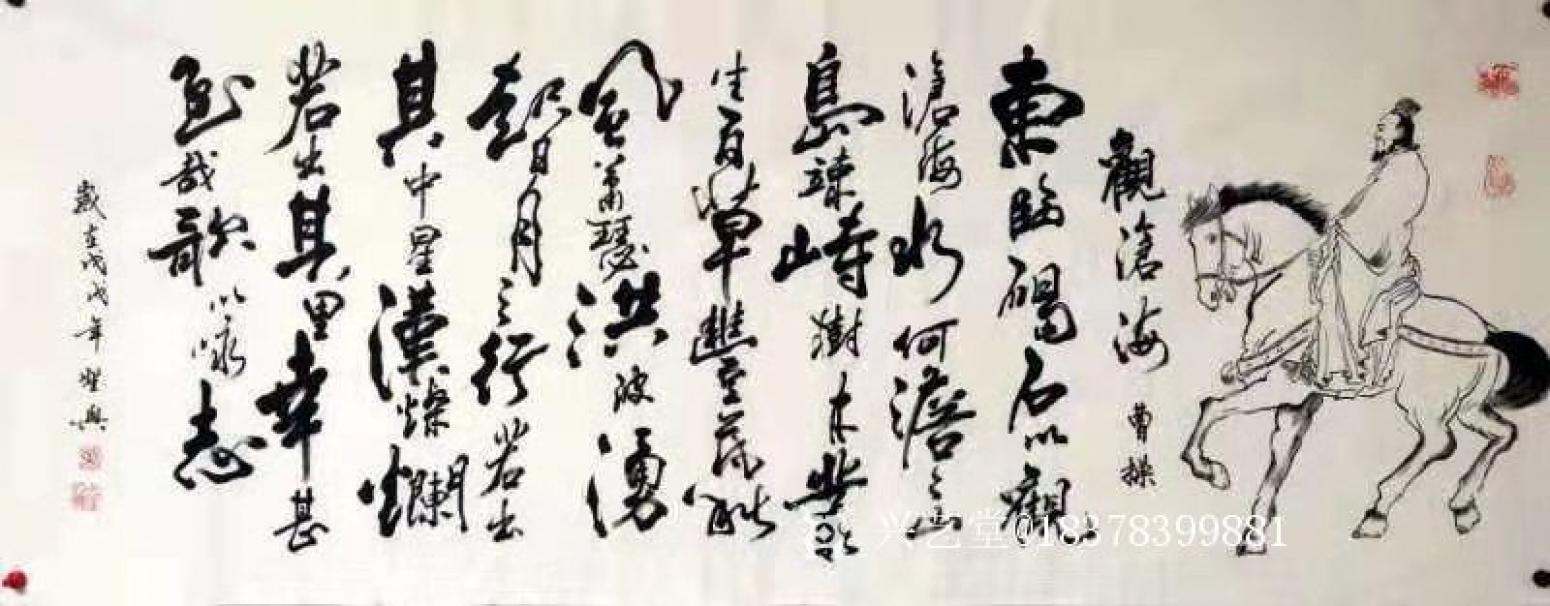 觀滄海
曹操
東臨碣石以觀
滄海水何澹澹山
島竦峙樹木叢
生百草豐茂秋
風蕭瑟洪波湧
起日月之行若出
其中星漢燦爛
若出其里幸甚
至哉歌以詠志
歲在戊戌年
兴艺堂@18378399881